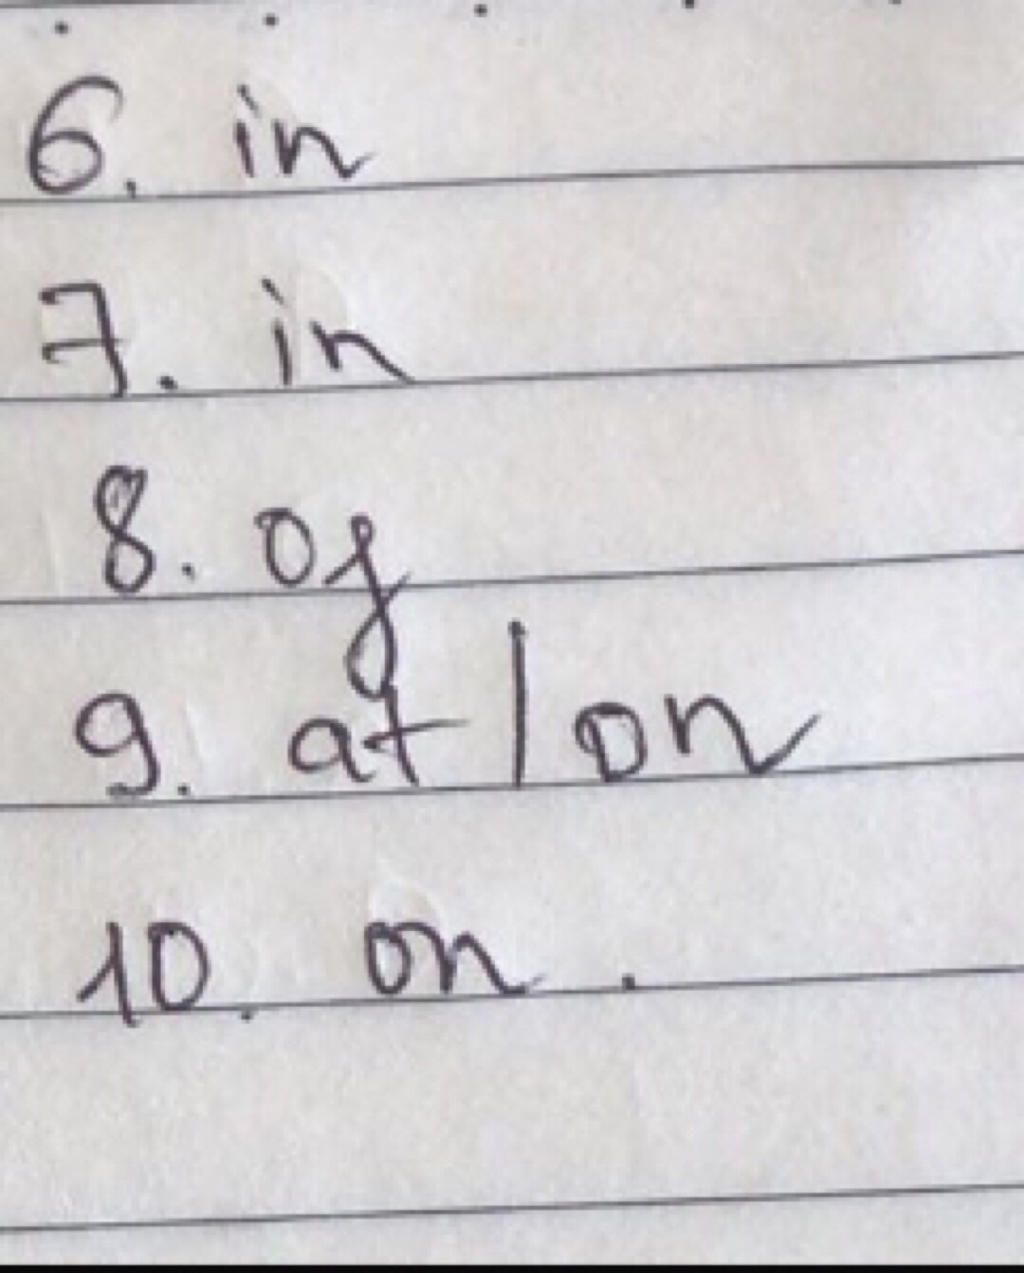 6. in
7. in
8. of
9. at | on
10. on .